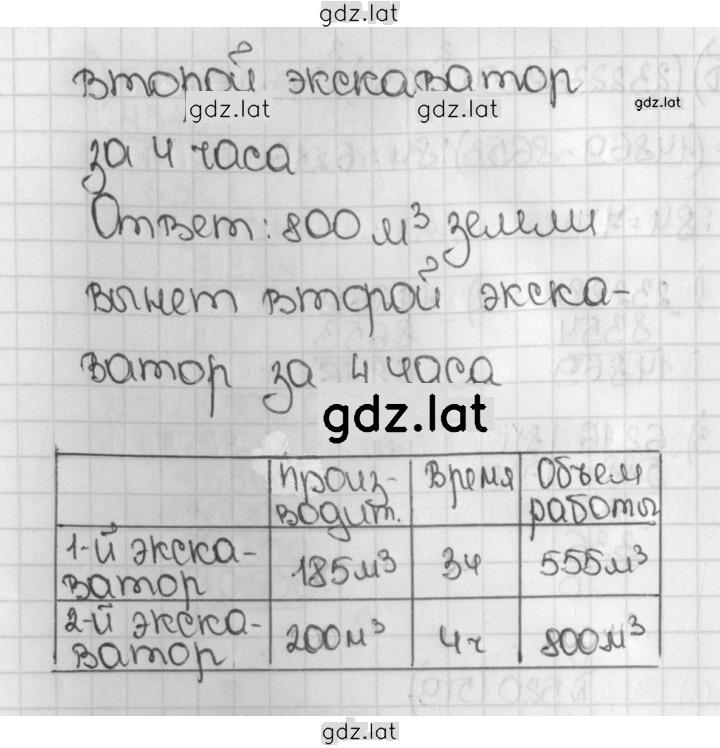 gdz.lat
второй экскаватор
gdz.lat gdz.lat gdz.lat
за 4 часа
Ответ: 800 м³ земли
вынет второй экска-
ватор за 4 часа
gdz.lat
Произ- Время Объем
водит. работы
1-й экска- 185м³ 3ч 555м³
ватор
2-й экска- 200м³ 4ч 800м³
ватор
gdz.lat